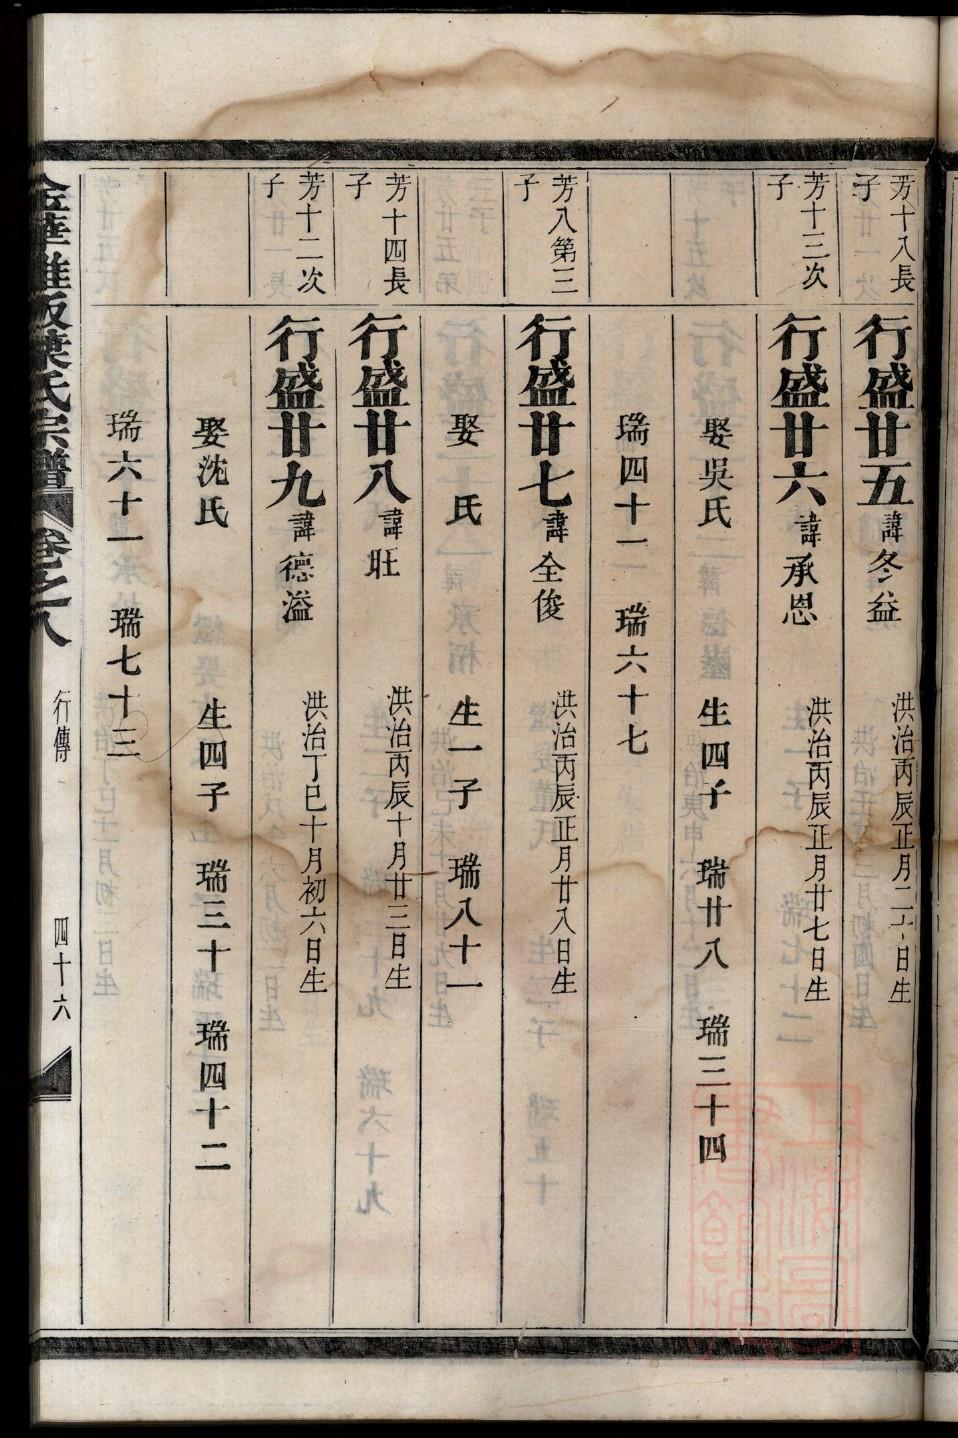 芳十八長子
行盛廿五諱冬益 洪治丙辰正月二十日生
芳十三次子
行盛廿六諱承恩 洪治丙辰正月廿七日生
娶吳氏 生四子 瑞廿八 瑞三十四
瑞四十一 瑞六十七
芳八第三子
行盛廿七諱全俊 洪治丙辰正月廿八日生
娶 氏 生一子 瑞八十一
芳十四長子
行盛廿八諱旺 洪治丙辰十月廿三日生
芳十二次子
行盛廿九諱德溢 洪治丁巳十月初六日生
娶沈氏 生四子 瑞三十 瑞四十二
瑞六十一 瑞七十三
葉氏宗譜 卷之八 行傳 四十六